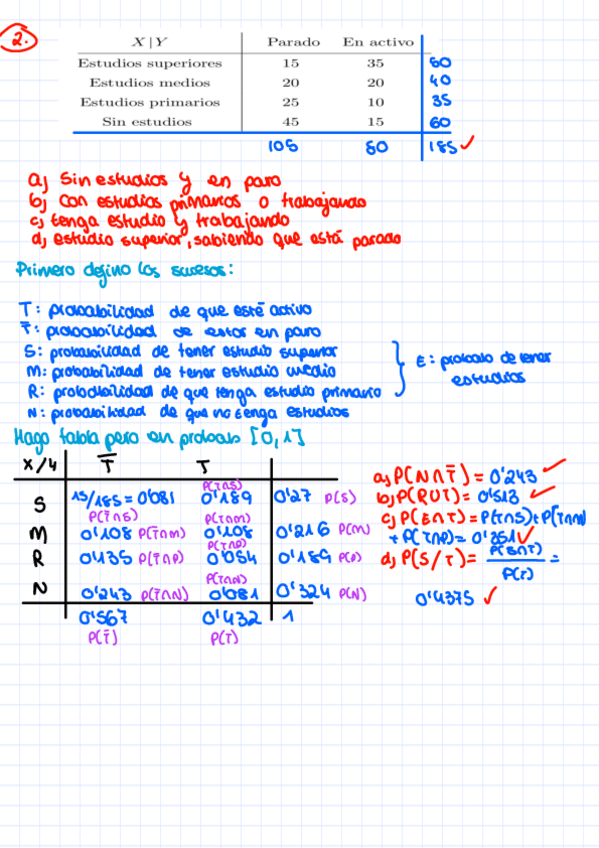 2.
X | Y Parado En activo
Estudios superiores 15 35 50
Estudios medios 20 20 40
Estudios primarios 25 10 35
Sin estudios 45 15 60
105 80 185 ✓
a) Sin estudios y en paro
b) Con estudios primarios o trabajando
c) tenga estudio y trabajando
d) estudio superior, sabiendo que está parado
Primero defino los sucesos:
T: probabilidad de que esté activo
T̅: probabilidad de estar en paro
S: probabilidad de tener estudio superior
M: probabilidad de tener estudio medio
R: probabilidad de que tenga estudio primario
N: probabilidad de que no tenga estudios
E: probab de tener
estudios
Hago tabla pero en probab [0,1]
X/Y T̅ T
S 15/185 = 0'081 P(T̅∩S) 0'189 P(T∩S) 0'27 P(S)
M 0'108 P(T̅∩M) 0'108 P(T∩M) 0'216 P(M)
R 0'135 P(T̅∩R) 0'054 P(T∩R) 0'189 P(R)
N 0'243 P(T̅∩N) 0'081 P(T∩N) 0'324 P(N)
0'567 0'432 1
P(T̅) P(T)
a) P(N∩T̅) = 0'243 ✓
b) P(RUT) = 0'513 ✓
c) P(E∩T) = P(T∩S) + P(T∩M)
+ P(T∩R) = 0'351 ✓
d) P(S/T) = P(S∩T) / P(T) =
0'4375 ✓